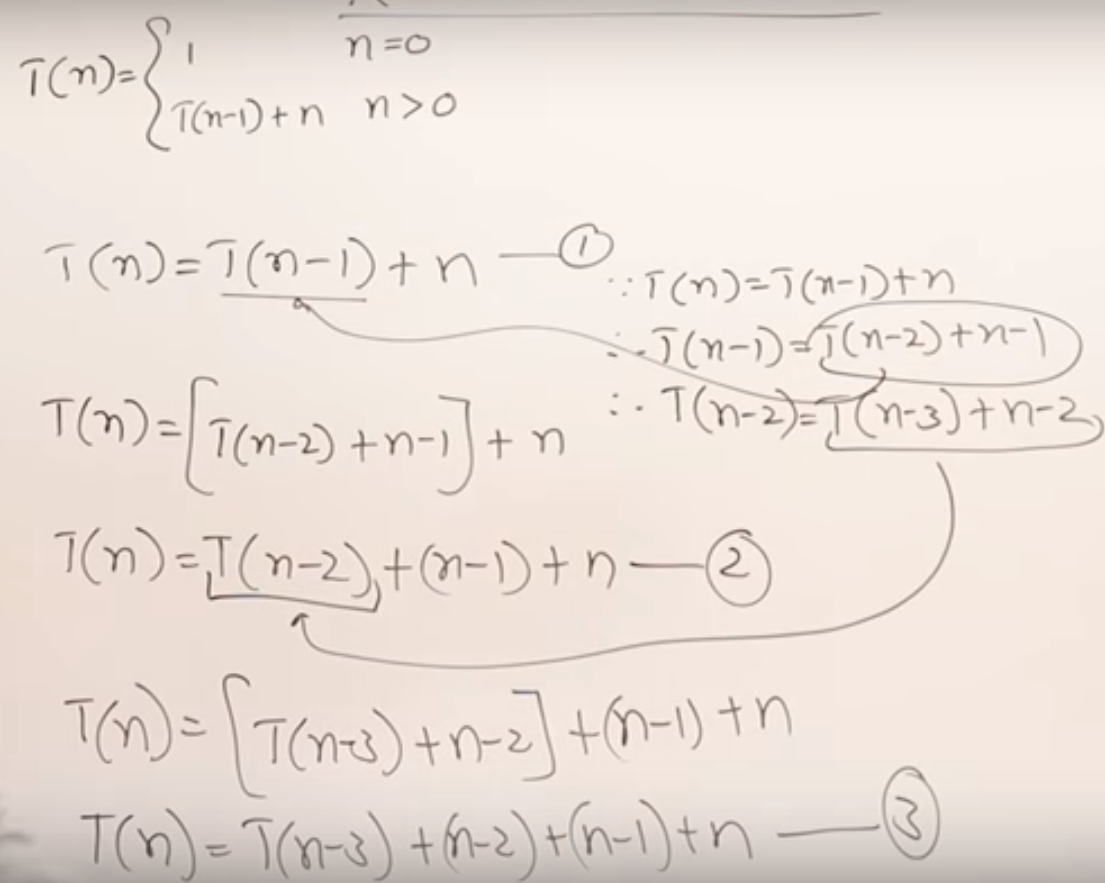 T(n)= { 1 n=0
T(n-1)+n n>0
T(n)=T(n-1)+n — ①
∵T(n)=T(n-1)+n
∴T(n-1)=T(n-2)+n-1
∴T(n-2)=T(n-3)+n-2
T(n)=[T(n-2)+n-1]+n
T(n)=T(n-2)+(n-1)+n — ②
T(n)=[T(n-3)+n-2]+(n-1)+n
T(n)=T(n-3)+(n-2)+(n-1)+n — ③